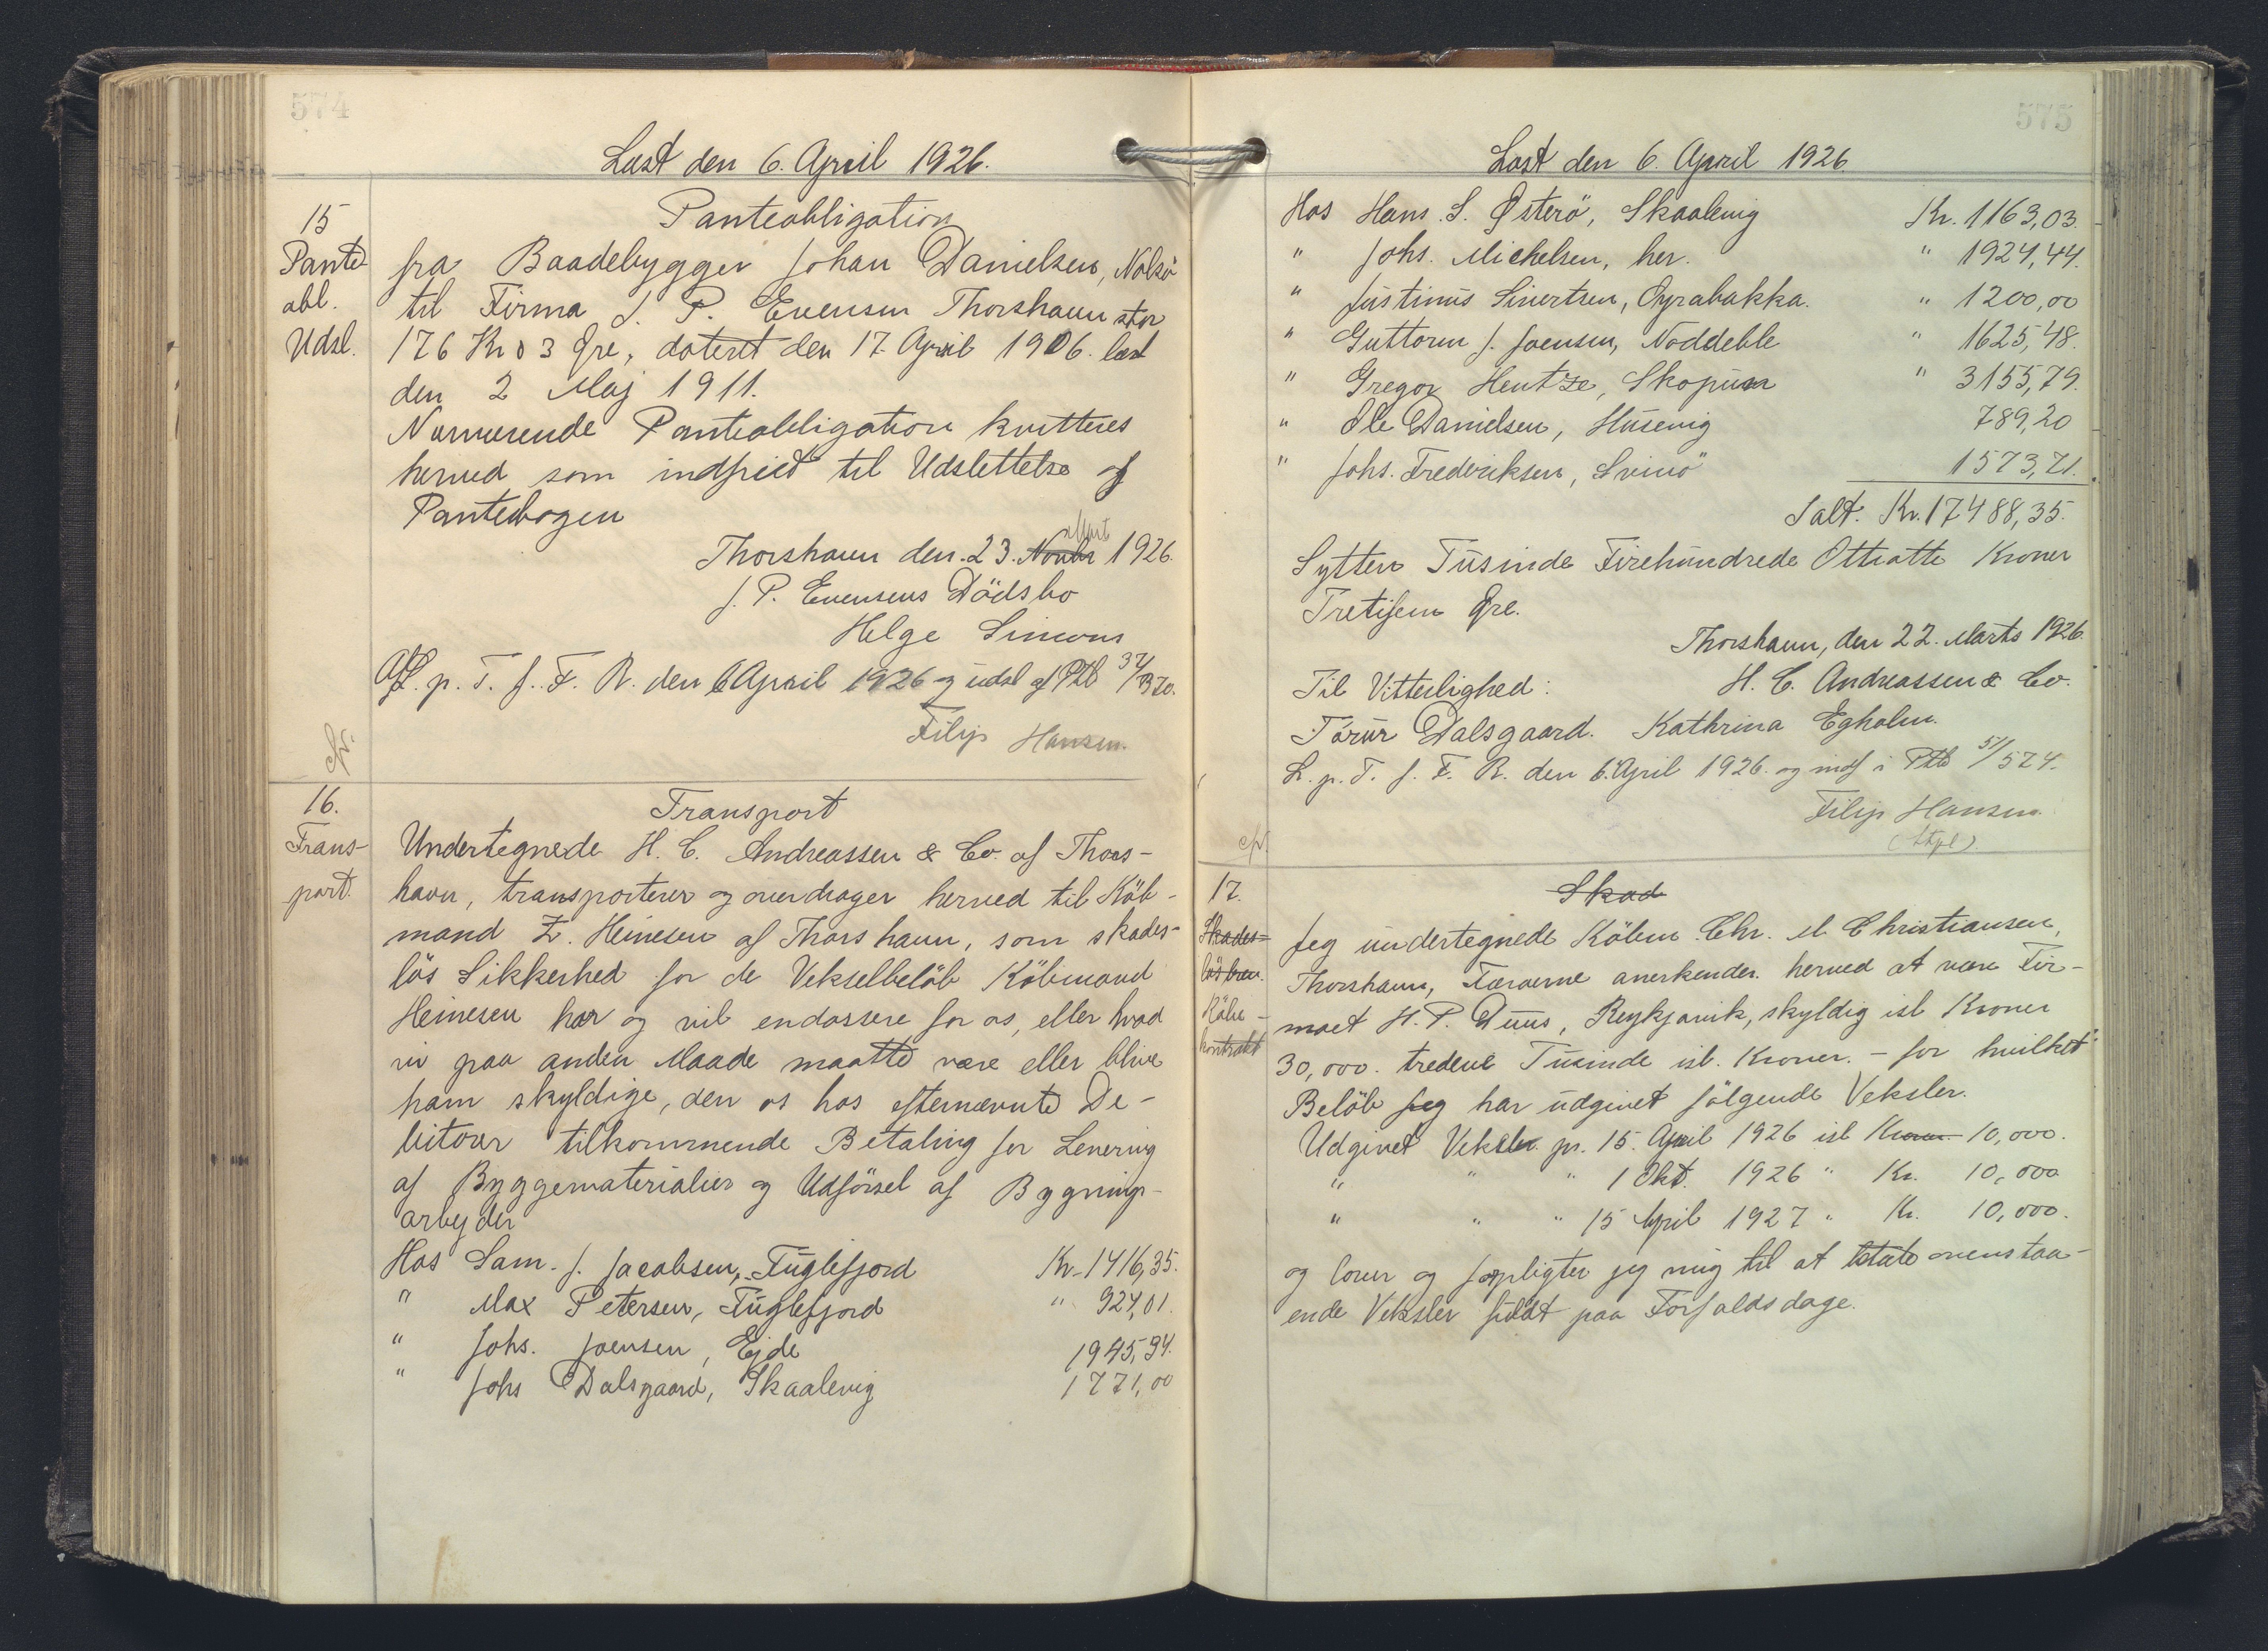 574
Læst den 6. April 1926.
15
Pante-
obl.
Udsl.
Panteobligation
fra Baadebygger Johan Danielsen, Nolsö
til Firma J. P. Evensen Thorshavn stor
176 Kr 03 Øre, dateret den 17. April 1906. læst
den 2 Maj 1911.
Nærværende Panteobligation kvitteres
herved som indfriet til Udslettelse af
Pantebogen
Thorshavn den. 23. Novbr 1926.
J. P. Evensens Dödsbo
Helge Simons
Afl. p. T. f. F. R. den 6 April 1926 og udsl af Ptb 37/370.
Filip Hansen.
cfr.
16.
Trans-
port.
Transport
Undertegnede H. C. Andreassen & Co. af Thors-
havn, transporterer og overdrager herved til Köb-
mand Z. Heinesen af Thorshavn, som skades-
lös Sikkerhed for de Vekselbelöb Köbmand
Heinesen har og vil endossere for os, eller hvad
vi paa anden Maade maatte være eller blive
ham skyldige, den os hos efternævnte De-
bitorer tilkommende Betaling for Levering
af Byggematerialier og Udförsel af Bygnings-
arbejder
Hos Sam. J. Jacobsen, Fuglefjord Kr. 1416,35.
" Max Petersen, Fuglefjord " 924,01.
" Johs. Joensen, Ejde 1945,94.
" Johs Dalsgaard, Skaalevig 1771,00
575
Læst den 6. April 1926.
Hos Hans. S. Østerö, Skaalevig Kr. 1163,03.
" Johs. Michelsen, her. " 1924,44.
" Justinus Sivertsen, Oyrabakka. " 1200,00
" Guttorm J. Joensen, Nöddeble " 1625,48.
" Gregor Hentze, Skopun " 3155,79.
" Ole Danielsen, Husevig 789,20
" Johs. Frederiksen, Svinö 1573,71.
Ialt. Kr. 17488,35.
Sytten Tusinde Firehundrede Ottiotte Kroner
Tretifem Øre.
Thorshavn, den 22. Marts 1926.
Til Vitterlighed: H. C. Andreassen & Co.
Tórur Dalsgaard. Kathrina Egholm.
L. p. T. f. F. R. den 6. April 1926. og indf i Ptb 51/574.
Filip Hansen.
(Stpl).
cfr.
17.
Skades-
lösbrev.
Købe-
kontrakt
Skad
Jeg undertegnede Köbm. Chr. M Christiansen,
Thorshavn, Færøerne anerkender herved at være Fir-
maet H. P. Duus, Reykjavik, skyldig isl Kroner
30,000. tredive Tusinde isl. Kroner. - for hvilket
Belöb jeg har udgivet fölgende Veksler.
Udgivet Veksler pr. 15. April 1926 isl Kroner 10,000.
" " " 1 Okt. 1926 " Kr. 10,000
" " " 15 April 1927 " Kr. 10,000.
og lover og forpligter jeg mig til at betale ovenstaa-
ende Veksler fuldt paa Forfaldsdage.